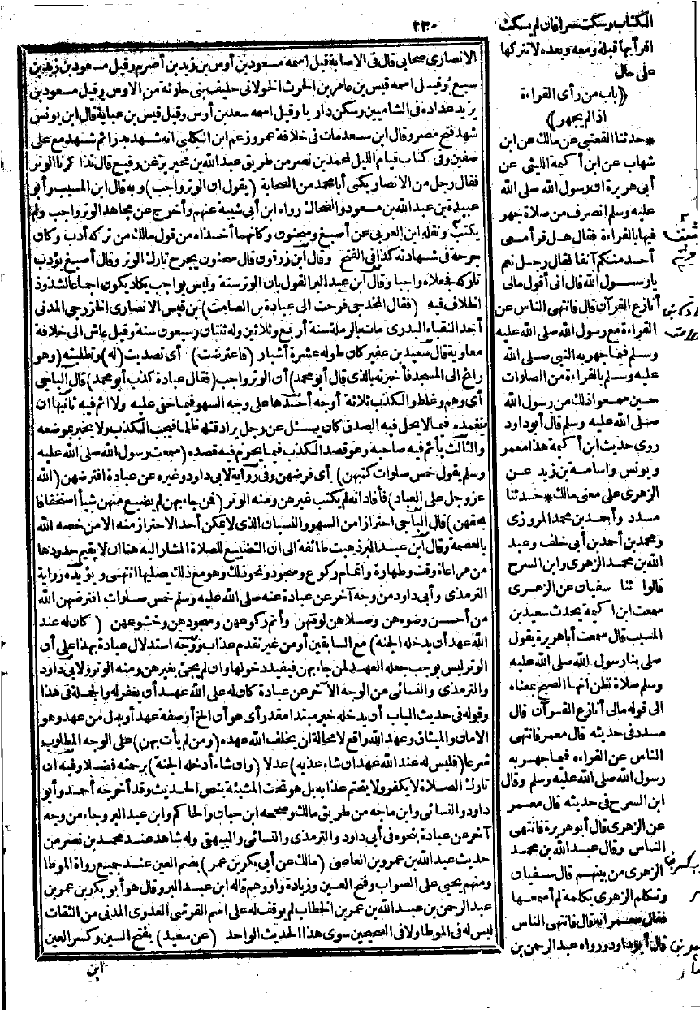 ٢٣٠
الانصاري صحابي قال في الاصابة قيل اسمه مسعود بن أوس بن زيد بن أصرم وقيل مسعود بن زيد بن
سبيع وقيل اسمه قيس بن عامر بن الحرث الخولاني حليف بني حارثة من الاوس وقيل مسعود بن
يزيد عداده في الشاميين وسكن داريا وقيل اسمه سعد بن أوس وقيل قيس بن عباية قال ابن يونس
شهد فتح مصر وقال ابن سعد مات في خلافة عمر وزعم ابن الكلبي انه شهد بدرا ثم شهد مع علي
صفين وفي كتاب قيام الليل لمحمد بن نصر من طريق عبد الله بن محيريز عن رفيع قال تذاكرنا الوتر
فقال رجل من الانصار يكنى أبا محمد من الصحابة (يقول ان الوتر واجب) وبه قال ابن المسيب وأبو
عبيدة بن عبد الله بن مسعود والضحاك رواه ابن أبي شيبة عنهم وأخرج عن مجاهد الوتر واجب ولم
يكتب ونقله ابن العربي عن أصبغ وسحنون وكأنهما أخذاه من قول مالك من تركه أدب وكان
جرحة في شهادته كذا في الفتح وقال ابن زرقون قال سحنون يجرح تارك الوتر وقال أصبغ يؤدب
تاركه فجعلاه واجبا وقال ابن عبد البر القول بان الوتر سنة وليس بواجب يكاد يكون اجماعا لشذوذ
الخلاف فيه (فقال المخدجي فرحت الى عبادة بن الصامت) بن قيس الانصاري الخزرجي المدني
أحد النقباء البدري مات بالرملة سنة أربع وثلاثين وله ثنتان وسبعون سنة وقيل عاش الى خلافة
معاوية قال سعيد بن عفير كان طوله عشرة أشبار (فاعترضت) أي تصديت (له) وتطلبته (وهو
رائح الى المسجد فأخبرته بالذي قال أبو محمد) أن الوتر واجب (فقال عبادة كذب أبو محمد) قال الباجي
أي وهم وغلط والكذب ثلاثة أوجه أحدها على وجه السهو فيما خفي عليه ولا اثم فيه ثانيها ان
يتعمده فيما لا يحل فيه الصدق كان يسئل عن رجل يراد قتله ظلما فيجب الكذب ولا يخبر بموضعه
والثالث يأثم فيه صاحبه وهو قصد الكذب فيما يحرم فيه قصده (سمعت رسول الله صلى الله عليه
وسلم يقول خمس صلوات كتبهن) أي فرضهن وفي رواية لابي داود وغيره عن عبادة افترضهن (الله
عز وجل على العباد) فأفاد انه لم يكتب غيرهن ومنه الوتر (فمن جاء بهن لم يضيع منهن شيأ استخفافا
بحقهن) قال الباجي احتراز امن السهو والنسيان الذي لا يمكن أحد الاحتراز منه الا من خصه الله
بالعصمة وقال ابن عبد البر ذهبت طائفة الى ان التضييع للصلاة المشار اليه هنا ان لا يقيم حدودها
من مراعاة وقت وطهارة واتمام ركوع وسجود ونحو ذلك وهو مع ذلك يصليها انتهى ويؤيده رواية
الترمذي وأبي داود من وجه آخر عن عبادة عنه صلى الله عليه وسلم خمس صلوات افترضهن الله
من أحسن وضوءهن وصلاهن لوقتهن وأتم ركوعهن وسجودهن وخشوعهن (كان له عند
الله عهد أن يدخله الجنة) مع السابقين أو من غير تقدم عذاب ووجه استدلال عبادة بهذا على أن
الوتر ليس بوجب جعله العهد لمن جاء بهن فيفيد دخولها وان لم يجئ بغيرهن ومنه الوتر ولابي داود
والترمذي والنسائي من الوجه الآخر عن عبادة كان له على الله عهد أن يغفر له والجملة في هذا
وقوله في حديث الباب أن يدخله خبر مبتدا مقدر أي هو أن الخ أو صفة عهد أو بدل من عهد وهو
الامان والميثاق وعهد الله واقع لا محالة ان يخلف الله عهده (ومن لم يأت بهن) على الوجه المطلوب
شرعا (فليس له عند الله عهد ان شاء عذبه) عدلا (وان شاء أدخله الجنة) برحمته فضلا وفيه ان
تارك الصلاة لا يكفر ولا يتحتم عذابه بل هو تحت المشيئة بنص الحديث وقد أخرجه أحمد وأبو
داود والنسائي وابن ماجه من طريق مالك وصححه ابن حبان والحاكم وابن عبد البر وجاء من وجه
آخر عن عبادة بنحوه في أبي داود والترمذي والنسائي والبيهقي وله شاهد عند محمد بن نصر من
حديث عبد الله بن عمرو بن العاصي (مالك عن أبي بكر بن عمر) بضم العين عند جميع رواة الموطا
ومنهم يحيى على الصواب وفتح العين وزيادة واو وهم قاله ابن عبد البر وقال هو أبو بكر بن عمر بن
عبد الرحمن بن عبد الله بن عمر بن الخطاب لم يوقف له على اسم القرشي العدوي المدني من الثقات
ليس له في الموطا ولا في الصحيحين سوى هذا الحديث الواحد (عن سعيد) بفتح السين وكسر العين
ابن
الكتاب وسكت سرا فان لم يسكت
اقرأ بها قبله ومعه وبعده لا تتركها
على حال
(باب من رأى القراءة
اذا لم يجهر)
*حدثنا القعنبي عن مالك عن ابن
شهاب عن ابن أكيمة الليثي عن
أبي هريرة ان رسول الله صلى الله
عليه وسلم انصرف من صلاة جهر
فيها بالقراءة فقال هل قرأ معي
أحد منكم آنفا فقال رجل نعم
يا رسول الله قال اني أقول مالي
أنازع القرآن قال فانتهى الناس عن
القراءة مع رسول الله صلى الله عليه
وسلم فيما جهر به النبي صلى الله
عليه وسلم بالقراءة من الصلوات
حين سمعوا ذلك من رسول الله
صلى الله عليه وسلم قال أبو داود
روى حديث ابن أكيمة هذا معمر
ويونس واسامة بن زيد عن
الزهري على معنى مالك *حدثنا
مسدد وأحمد بن محمد المروزي
ومحمد بن أحمد بن أبي خلف وعبد
الله بن محمد الزهري وابن السرح
قالوا ثنا سفيان عن الزهري
سمعت ابن أكيمة يحدث سعيد بن
المسيب قال سمعت أبا هريرة يقول
صلى بنا رسول الله صلى الله عليه
وسلم صلاة نظن انها الصبح بمعناه
الى قوله مالي أنازع القرآن قال
مسدد في حديثه قال معمر فانتهى
الناس عن القراءة فيما جهر به
رسول الله صلى الله عليه وسلم وقال
ابن السرح في حديثه قال معمر
عن الزهري قال أبو هريرة فانتهى
الناس وقال عبد الله بن محمد
الزهري من بينهم قال سفيان
وتكلم الزهري بكلمة لم أسمعها
فقال معمر انه قال فانتهى الناس
قال أبو داود ورواه عبد الرحمن بن